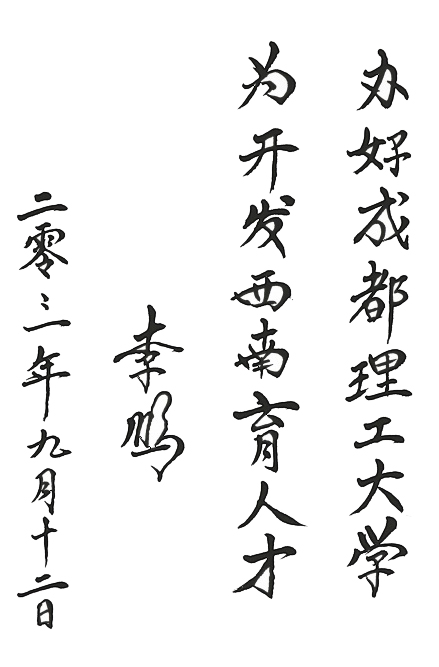 办好成都理工大学
为开发西南育人才
李鹏
二零〻一年九月十二日